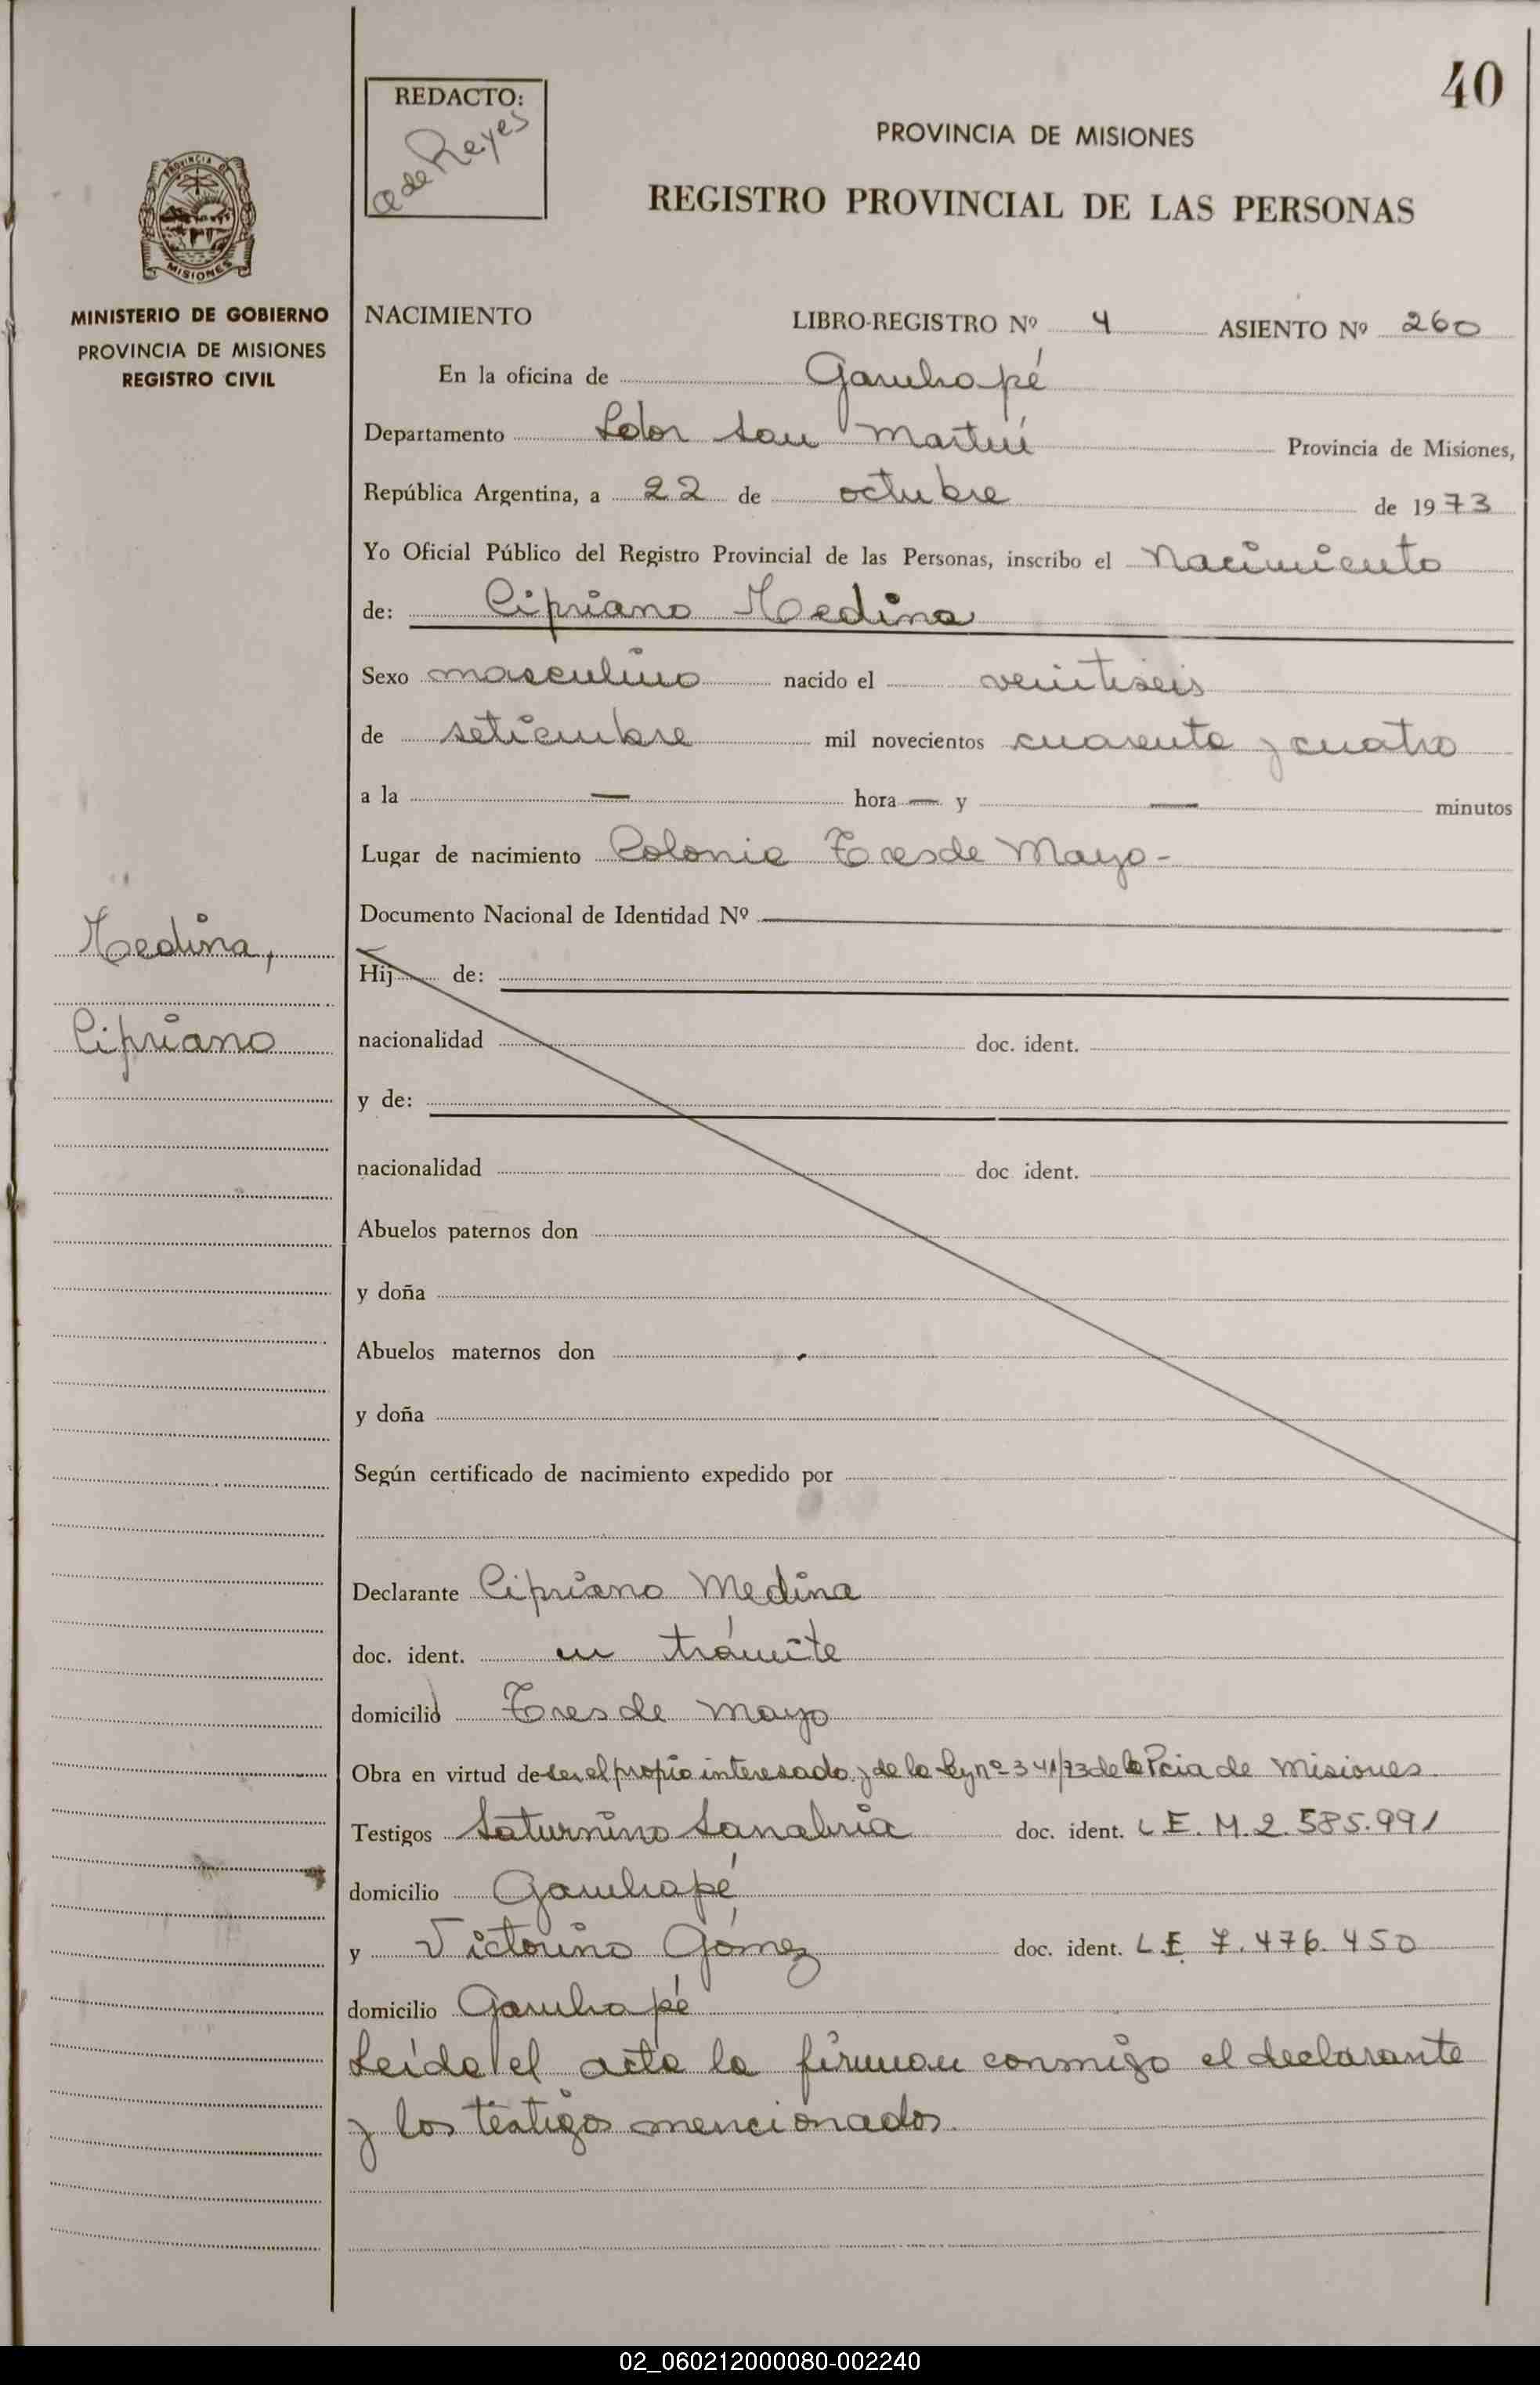 40
REDACTO:
a de Reyes
PROVINCIA DE MISIONES
REGISTRO PROVINCIAL DE LAS PERSONAS
PROVINCIA DE
MISIONES
MINISTERIO DE GOBIERNO
PROVINCIA DE MISIONES
REGISTRO CIVIL
Medina,
Cipriano
NACIMIENTO LIBRO-REGISTRO Nº 4 ASIENTO Nº 260
En la oficina de Garuhapé
Departamento Ldor San Martín Provincia de Misiones,
República Argentina, a 22 de octubre de 1973
Yo Oficial Público del Registro Provincial de las Personas, inscribo el Nacimiento
de: Cipriano Medina
Sexo masculino nacido el veintiseis
de setiembre mil novecientos cuarenta y cuatro
a la — hora — y — minutos
Lugar de nacimiento Colonia Tres de Mayo-
Documento Nacional de Identidad Nº
Hij de:
nacionalidad doc. ident.
y de:
nacionalidad doc ident.
Abuelos paternos don
y doña
Abuelos maternos don
y doña
Según certificado de nacimiento expedido por
Declarante Cipriano Medina
doc. ident. en trámite
domicilio Tres de Mayo
Obra en virtud de ser el propio interesado y de la Ley nº 341/73 de la Pcia de Misiones
Testigos Saturnino Sanabria doc. ident. L.E. M. 2.585.991
domicilio Garuhapé
y Victorino Gómez doc. ident. L.E. 7.476.450
domicilio Garuhapé
Leída el acta la firman conmigo el declarante
y los testigos mencionados.
02_060212000080-002240